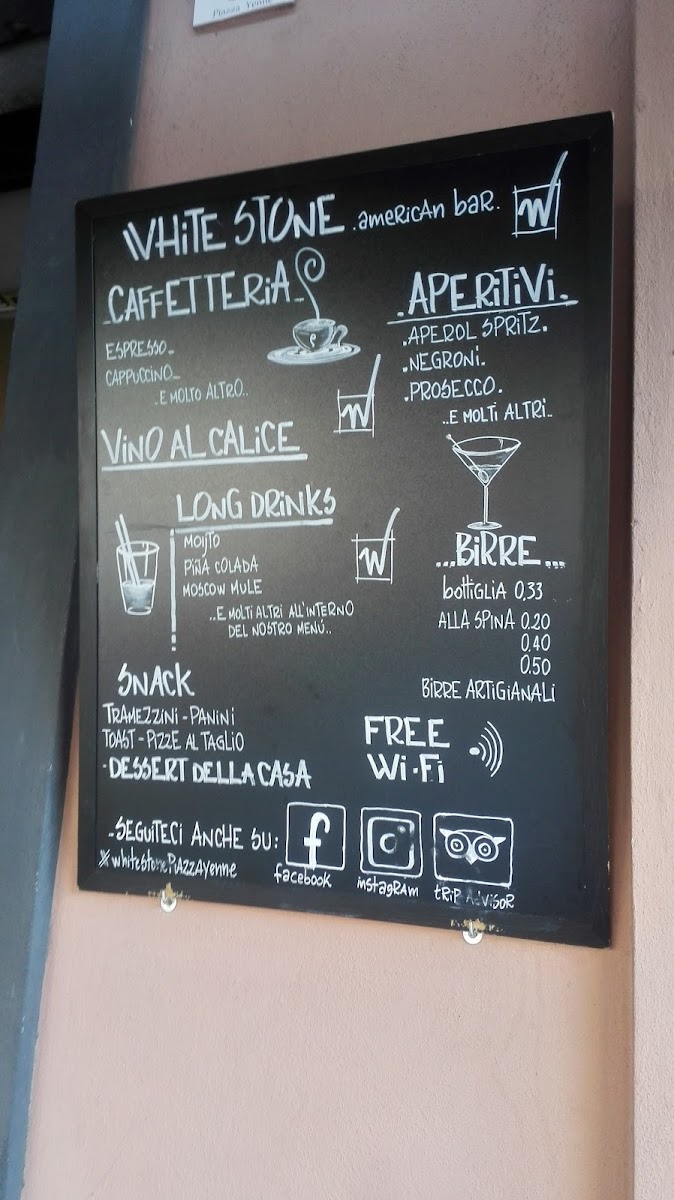 Piazza Yenne
WHITE STONE .american bar. W
CAFFETTERIA
ESPRESSO
CAPPUCCINO
..E MOLTO ALTRO..
.APERITIVI.
.APEROL SPRITZ.
.NEGRONI.
.PROSECCO.
..E MOLTI ALTRI..
W
VINO AL CALICE
LONG DRINKS
MOJITO
PIÑA COLADA
MOSCOW MULE
..E MOLTI ALTRI ALL'INTERNO
DEL NOSTRO MENÚ..
W
...BIRRE...
bottiglia 0,33
ALLA SPINA 0.20
0.40
0.50
BIRRE ARTIGIANALI
SNACK
TRAMEZZINI - PANINI
TOAST - PIZZE AL TAGLIO
- DESSERT DELLA CASA
FREE
Wi-Fi
-SEGUITECI ANCHE SU:
※ whitestonePiAZZAYenne
f
facebook
instagram
TRIP ADVISOR